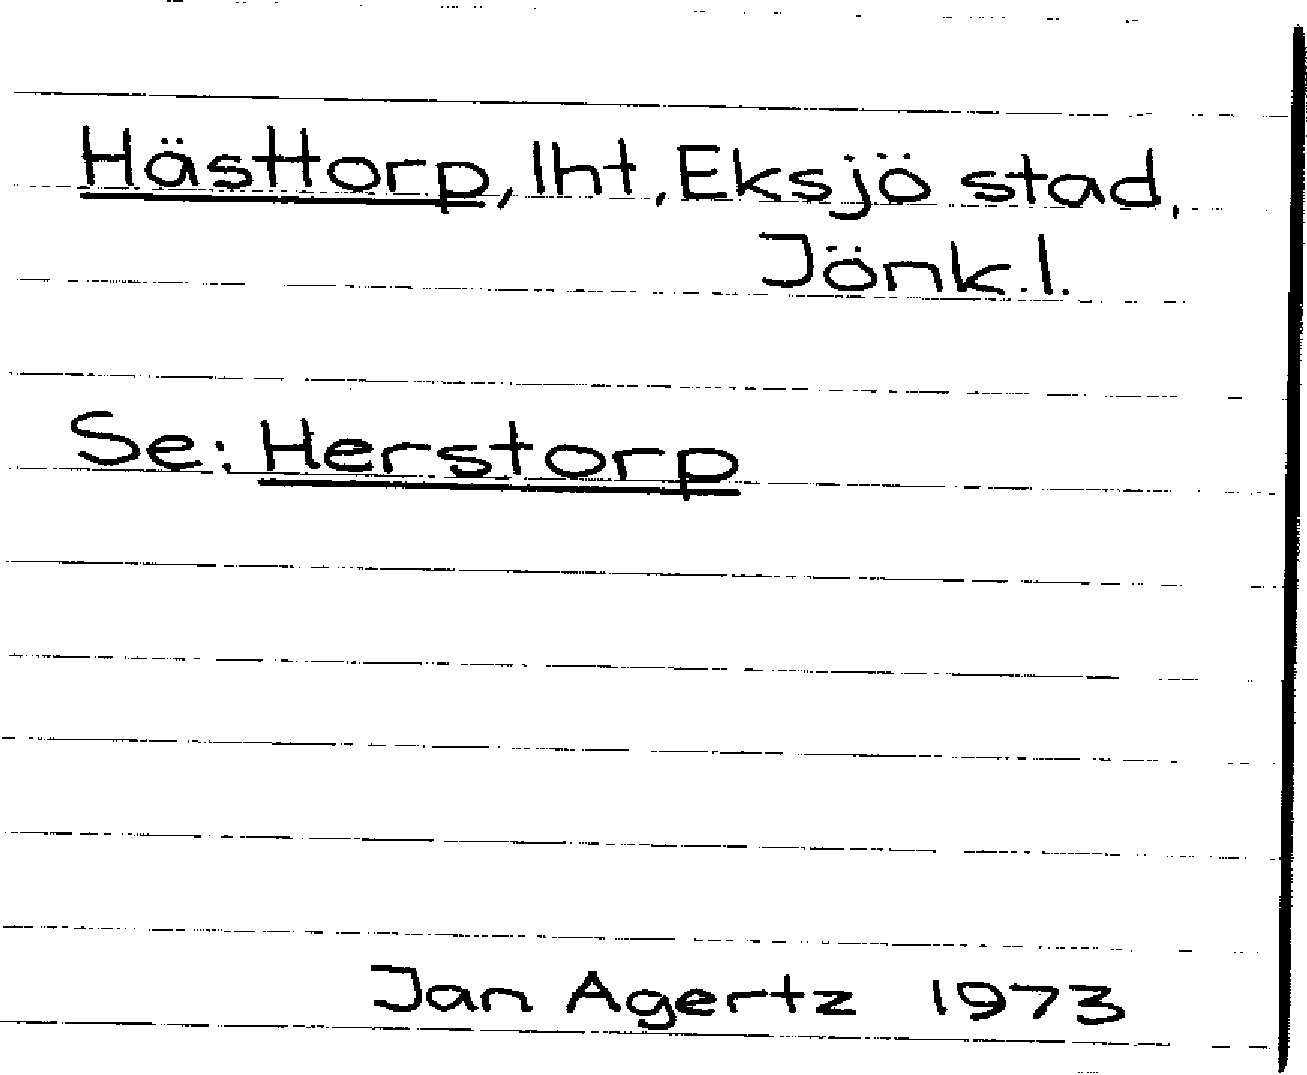 Hästtorp, lht, Eksjö stad,
Jönk.l.
Se: Herstorp
Jan Agertz 1973